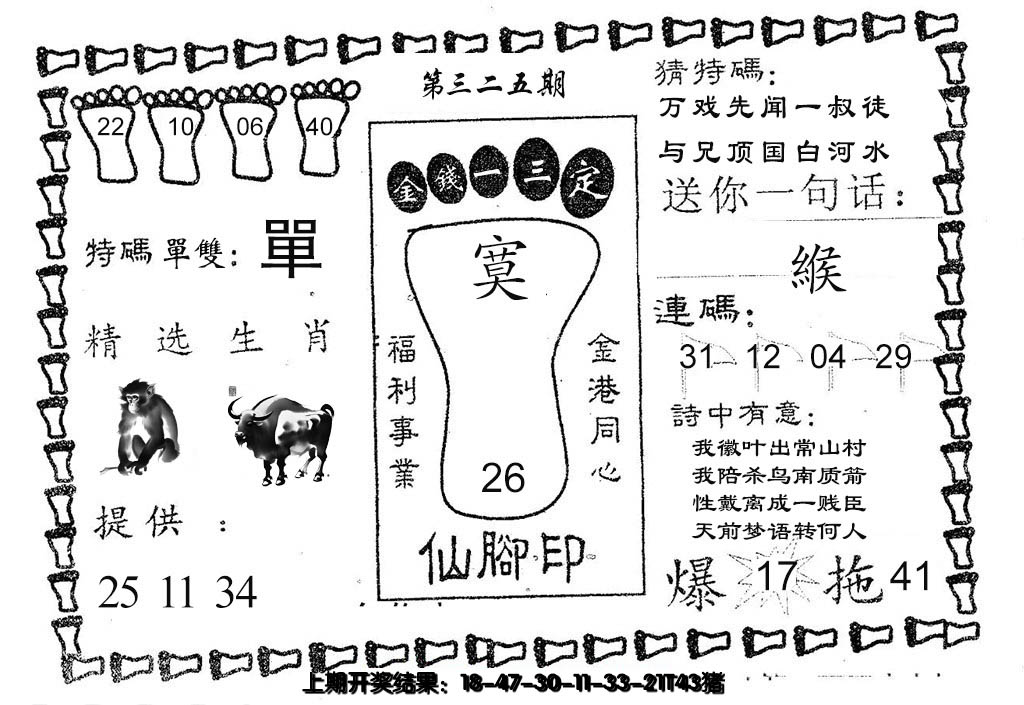 第三二五期
22 10 06 40
特碼單雙：單
精选生肖
提供：
25 11 34
金錢一三定
寞
26
福利事業
金港同心
仙腳印
猜特碼：
万戏先闻一叔徒
与兄顶国白河水
送你一句话：
緱
連碼：
31 12 04 29
詩中有意：
我徽叶出常山村
我陪杀鸟南质箭
性戴离成一贱臣
天前梦语转何人
爆 17 拖 41
上期开奖结果：18-47-30-11-33-21T43猪